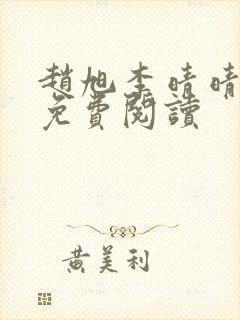 趙旭李晴晴
免費閱讀
黄美利